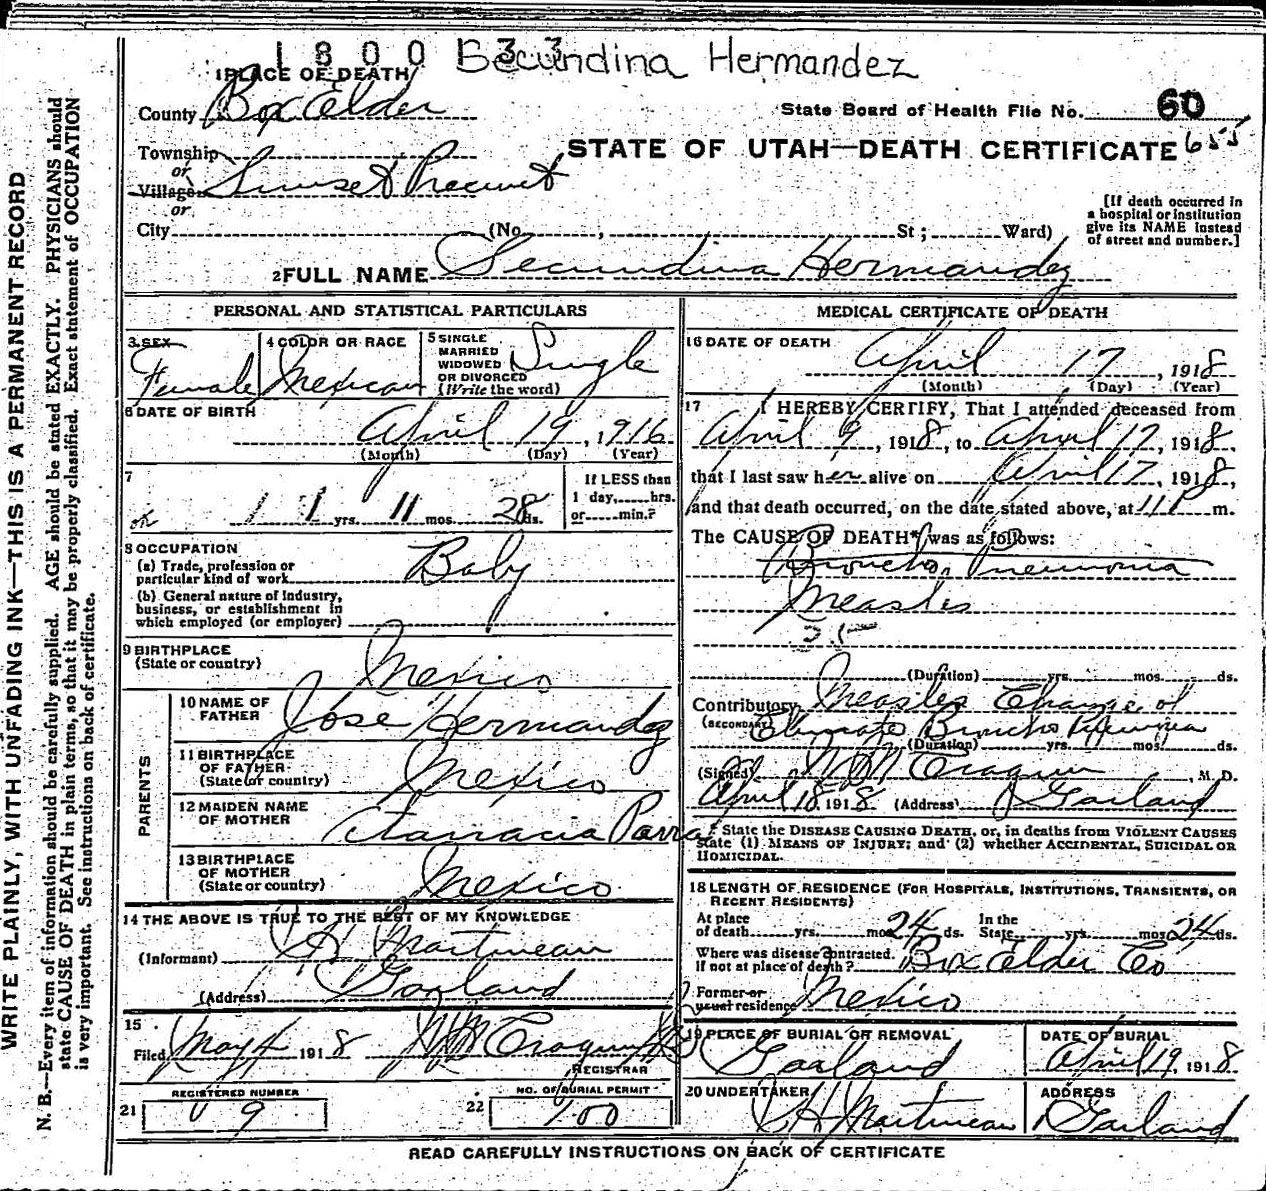 1800133 Secundina Hermandez
1 PLACE OF DEATH
County Box Elder
State Board of Health File No. 60
655
STATE OF UTAH—DEATH CERTIFICATE
Township
or
Village Sunset Precinct
or
City (No. , St ; Ward)
[If death occurred in
a hospital or institution
give its NAME instead
of street and number.]
2 FULL NAME Secundina Hermandez
PERSONAL AND STATISTICAL PARTICULARS
3 SEX
Female
4 COLOR OR RACE
Mexican
5 SINGLE
MARRIED
WIDOWED
OR DIVORCED
(Write the word)
Single
6 DATE OF BIRTH
April 19, 1916
(Month) (Day) (Year)
7
1 yrs. 11 mos. 28 ds.
If LESS than
1 day, hrs.
or min.?
8 OCCUPATION
(a) Trade, profession or
particular kind of work Baby
(b) General nature of industry,
business, or establishment in
which employed (or employer)
9 BIRTHPLACE
(State or country) Mexico
PARENTS
10 NAME OF
FATHER Jose Hermandez
11 BIRTHPLACE
OF FATHER
(State or country) Mexico
12 MAIDEN NAME
OF MOTHER Parra
13 BIRTHPLACE
OF MOTHER
(State or country) Mexico
14 THE ABOVE IS TRUE TO THE BEST OF MY KNOWLEDGE
(Informant) Martineau
(Address) Garland
15
Filed May 4 1918
REGISTRAR
REGISTERED NUMBER
21 9
NO. OF BURIAL PERMIT
22 100
MEDICAL CERTIFICATE OF DEATH
16 DATE OF DEATH
April 17, 1918
(Month) (Day) (Year)
17 I HEREBY CERTIFY, That I attended deceased from
April 9, 1918, to April 17, 1918,
that I last saw her alive on April 17, 1918,
and that death occurred, on the date stated above, at 11 P m.
The CAUSE OF DEATH* was as follows:
Broncho Pneumonia
Measles
(Duration) yrs. mos. ds.
Contributory Measles Change of
(SECONDARY) Climate Broncho Pneumonia
(Duration) yrs. mos. ds.
(Signed) , M. D.
April 18, 1918 (Address) Garland
* State the DISEASE CAUSING DEATH, or, in deaths from VIOLENT CAUSES
state (1) MEANS OF INJURY; and (2) whether ACCIDENTAL, SUICIDAL OR
HOMICIDAL.
18 LENGTH OF RESIDENCE (FOR HOSPITALS, INSTITUTIONS, TRANSIENTS, OR
RECENT RESIDENTS)
At place
of death yrs. mos. 24 ds.
In the
State yrs. mos. 24 ds.
Where was disease contracted.
If not at place of death? Box Elder Co
Former or
usual residence Mexico
19 PLACE OF BURIAL OR REMOVAL
Garland
DATE OF BURIAL
April 19, 1918
20 UNDERTAKER
Martineau
ADDRESS
Garland
READ CAREFULLY INSTRUCTIONS ON BACK OF CERTIFICATE
WRITE PLAINLY, WITH UNFADING INK—THIS IS A PERMANENT RECORD
N. B.—Every item of information should be carefully supplied. AGE should be stated EXACTLY. PHYSICIANS should
state CAUSE OF DEATH in plain terms, so that it may be properly classified. Exact statement of OCCUPATION
is very important. See instructions on back of certificate.